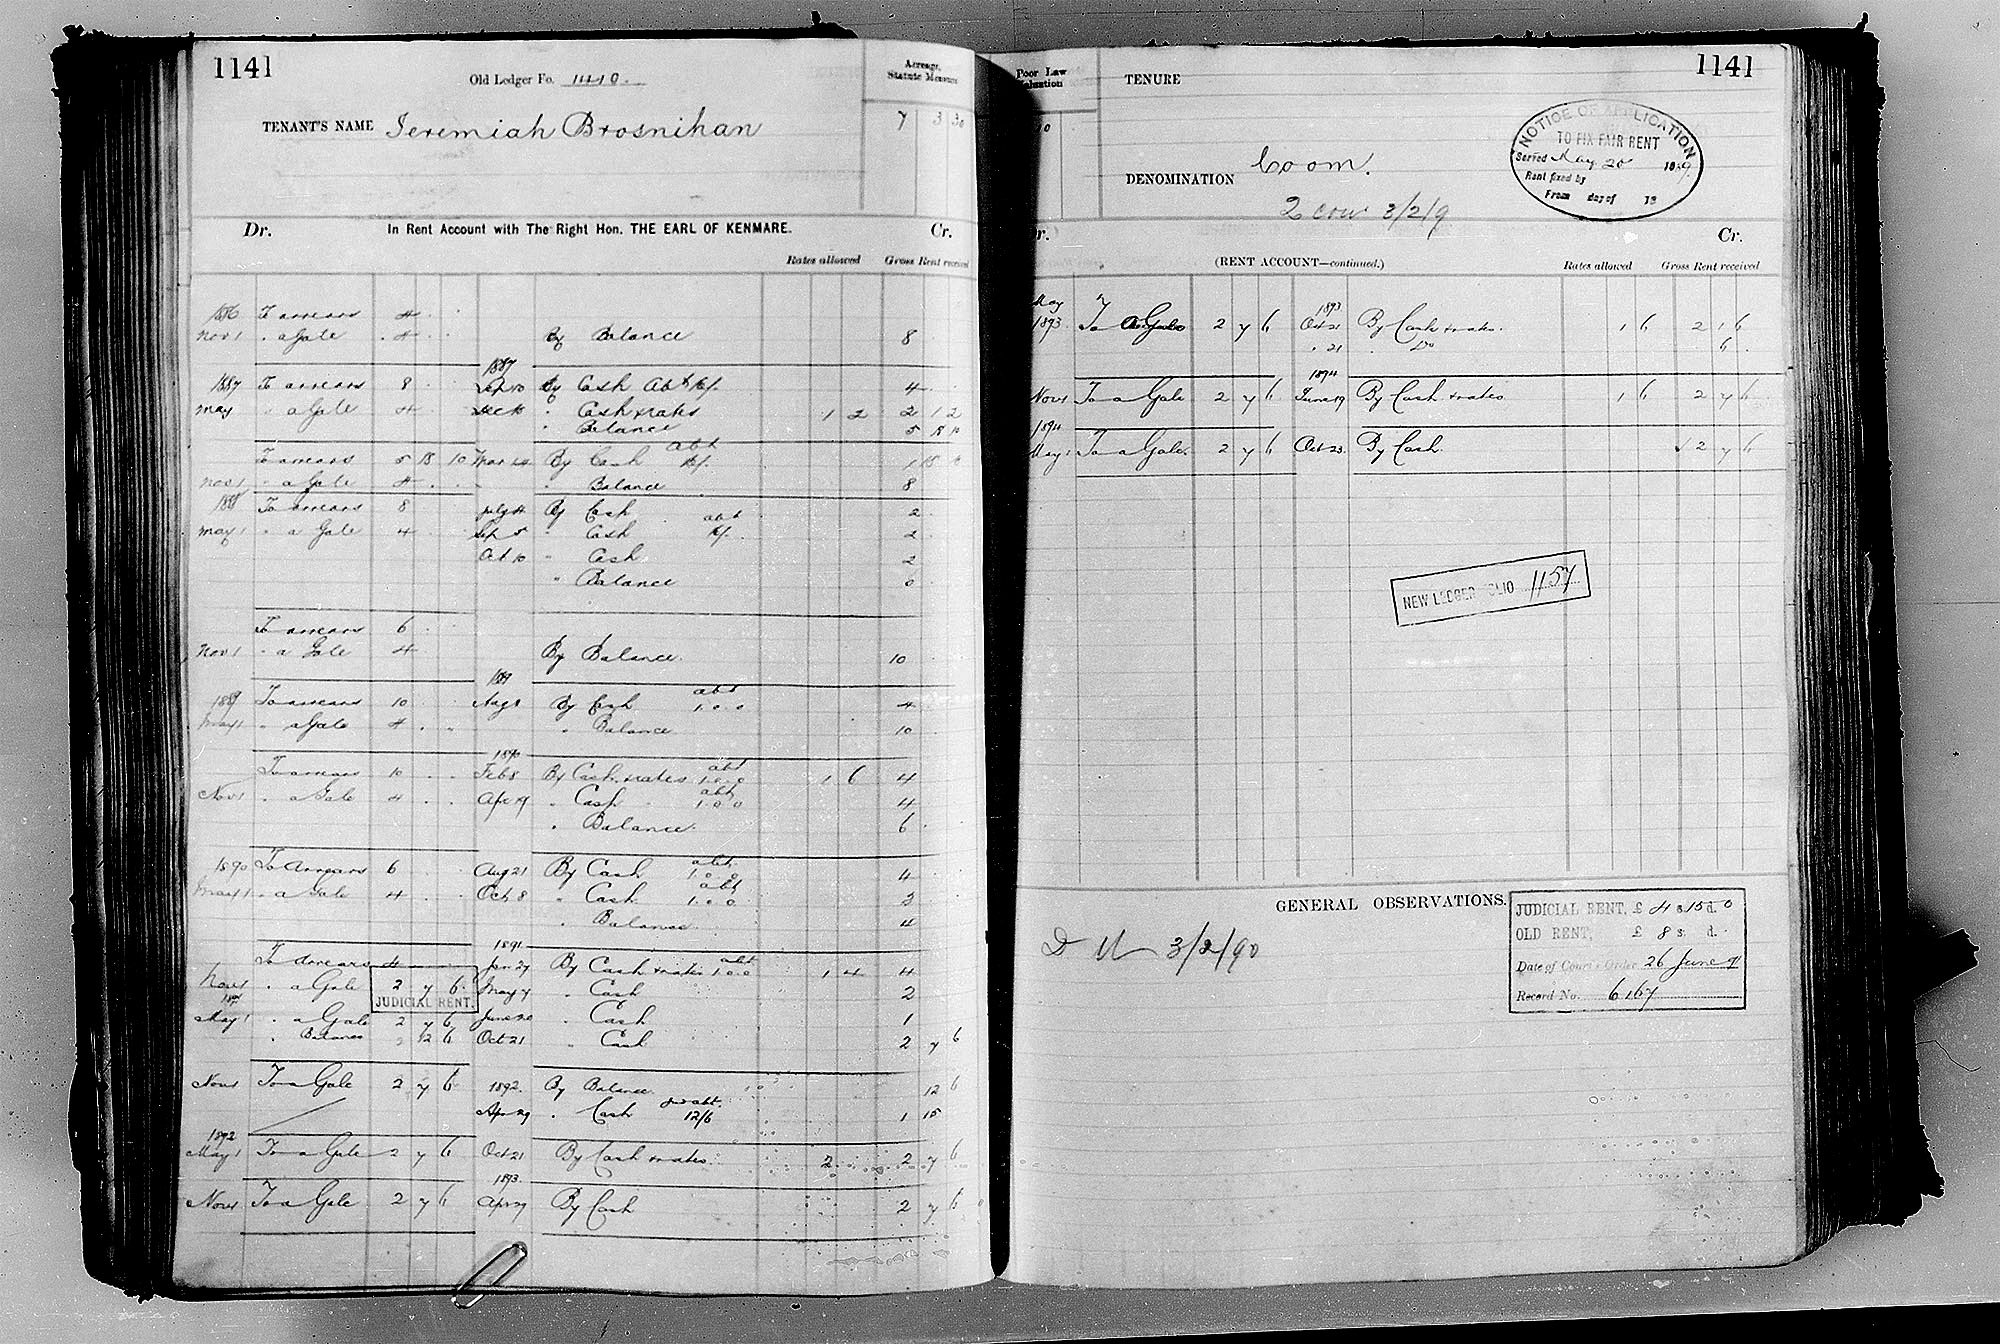 1141
Old Ledger Fo. 1410.
Acreage, Statute Measure
TENANT'S NAME Jeremiah Brosnihan
7 3 30
Dr. In Rent Account with The Right Hon. THE EARL OF KENMARE. Cr.
Rates allowed Gross Rent received
1886 To arrears 4
Nov 1 " a Gale 4 By Balance 8
1887
1887 To arrears 8 Sep 10 By Cash Abt 4
May " a Gale 4 Dec 10 " Cash & rates 1 2 2 1 2
" Balance 5 18 10
To arrears 5 18 10 Mar 24 By Cash abt 1 18
Nov 1 " a Gale 4 " Balance 8
1888 To arrears 8 July 4 By Cash 2
May 1 " a Gale 4 Sep 5 " Cash abt 2
Oct 10 " Cash 2
" Balance 6
To arrears 6
Nov 1 " a Gale 4 By Balance 10
1889
1889 To arrears 10 Aug 8 By Cash abt 1.0.0 4
May 1 " a Gale 4 " Balance 10
1890
To arrears 10 Feb 8 By Cash & rates abt 1.0.0 1 6 4
Nov 1 " a Gale 4 Apr 19 " Cash abt 1.0.0 4
" Balance 6
1890 To Arrears 6 Aug 21 By Cash abt 1.0.0 4
May 1 " a Gale 4 Oct 8 " Cash abt 1.0.0 2
" Balance 4
1891
To Arrears 4 Jan 27 By Cash & rates abt 1.0.0 1 4 4
Nov 1 " a Gale 2 7 6 May 7 " Cash 2
JUDICIAL RENT.
1891
May 1 " a Gale 2 7 6 June 20 " Cash 1
" Balance 12 6 Oct 21 " Cash 2 7 6
Nov 1 To a Gale 2 7 6 1892 By Balance 12 6
Apr 29 " Cash abt 12/6 1 15
1892
May 1 To a Gale 2 7 6 Oct 21 By Cash & rates 2 2 7 6
1893
Nov 1 To a Gale 2 7 6 Apr 27 By Cash 2 7 6
Poor Law Valuation
TENURE
1141
NOTICE OF APPLICATION
TO FIX FAIR RENT
Served May 20 1889
Rent fixed by
From day of 18
DENOMINATION Coom.
2 cow 3/2/9
Dr. Cr.
(RENT ACCOUNT—continued.)
Rates allowed Gross Rent received
May 1893
1893 To a Gale 2 7 6 Oct 21 By Cash & rates. 1 6 2 1 6
" 21 " Do 6
1894
Nov 1 To a Gale 2 7 6 June 19 By Cash & rates 1 6 2 7 6
1894
May 1 To a Gale 2 7 6 Oct 23 By Cash. 2 7 6
NEW LEDGER FOLIO 1157
GENERAL OBSERVATIONS.
3/2/90
JUDICIAL RENT, £ 4 s. 15 d. 0
OLD RENT, £ 8 s. d.
Date of Court's Order 26 June 91
Record No. 6167